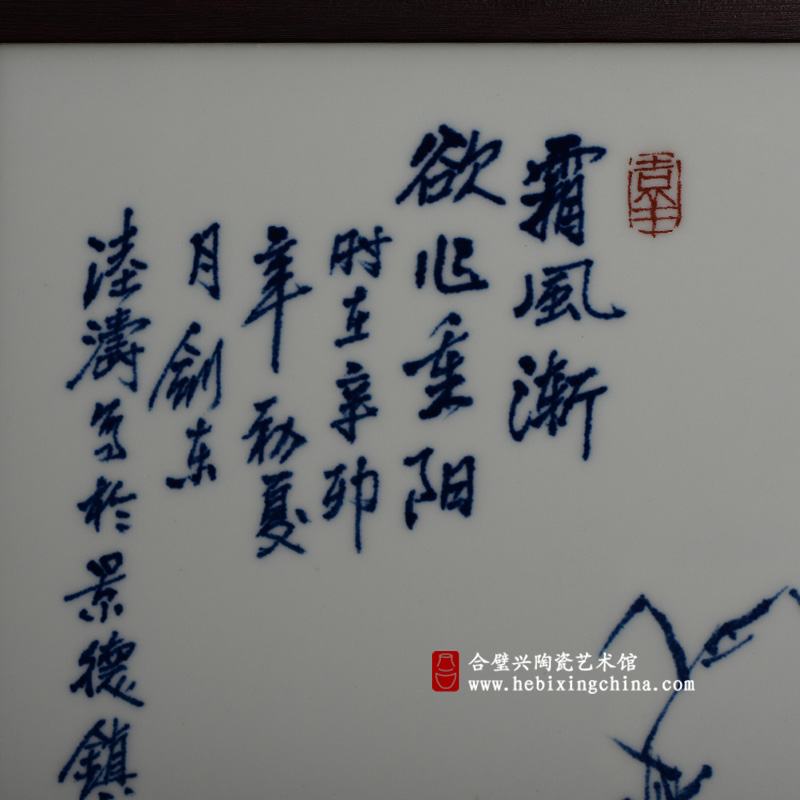 霜風漸
欲作重阳
时在辛卯
年初夏
月劍东
陸濤写於景德鎮
合璧兴陶瓷艺术馆
www.hebixingchina.com